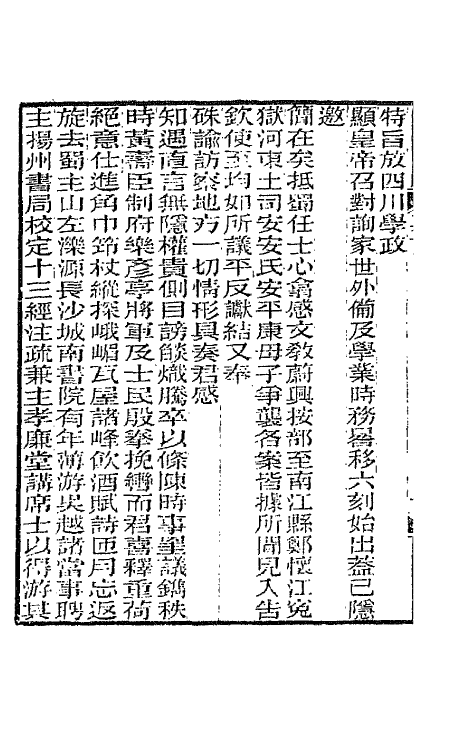 特旨放四川學政
顯皇帝召對詢家世外備及學業時務晷移六刻始出蓋已隱
邀
簡在矣抵蜀任士心翕感文敎蔚興按部至南江縣鄭懷江寃
獄河東土司安安氏安平康母子爭襲各案皆據所聞見入告
欽使至均如所議平反讞結又奉
硃諭訪察地方一切情形具奏君感
知遇直言無隱權貴側目謗燄熾騰卒以條陳時事鐫議鐫秩
時黃壽臣制府樂彥亭將軍及士民殷拳挽轡而君喜釋重荷
絕意仕進角巾筇杖縱探峨嵋瓦屋諸峰飲酒賦詩匝月忘返
旋去蜀主山左濼源長沙城南書院有年薄游吳越諸當事聘
主揚州書局校定十三經注疏兼主孝廉堂講席士以得游其